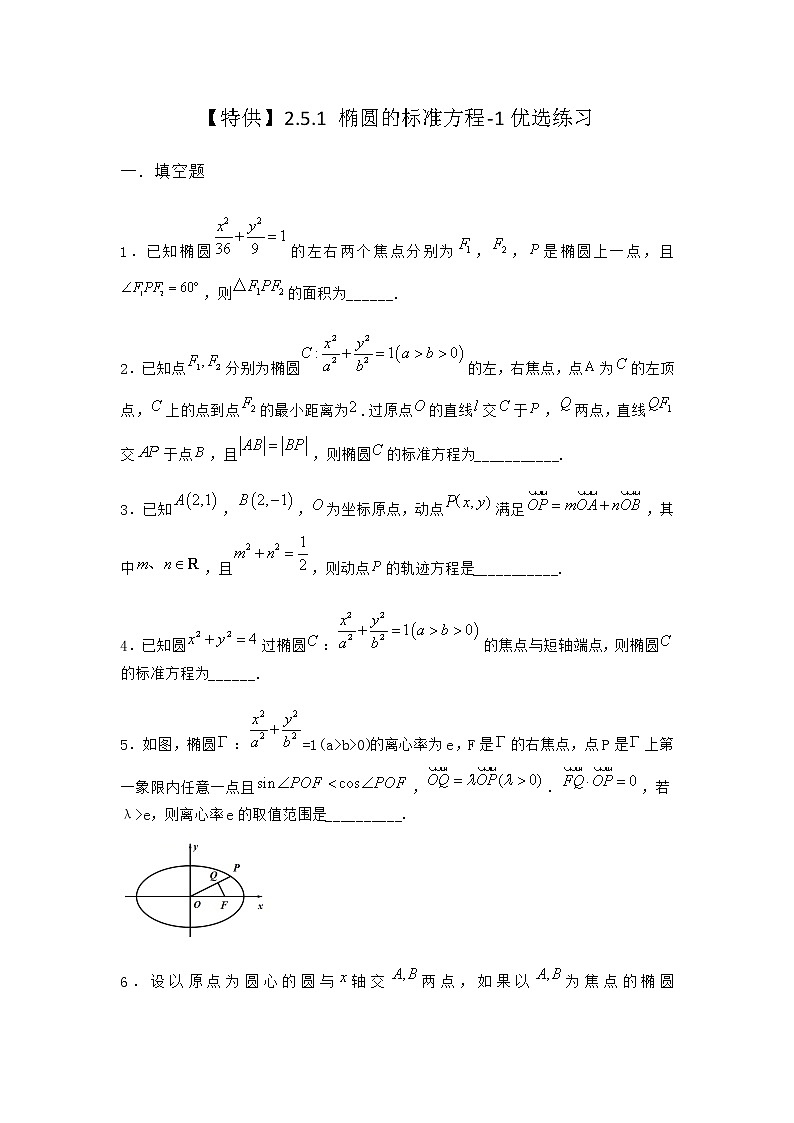 【特供】2.5.1 椭圆的标准方程-1优选练习
一．填空题
1．已知椭圆 x²/36 + y²/9 = 1 的左右两个焦点分别为 F₁，F₂，P 是椭圆上一点，且
∠F₁PF₂ = 60°，则 △F₁PF₂ 的面积为______.
2．已知点 F₁, F₂ 分别为椭圆 C : x²/a² + y²/b² = 1(a > b > 0) 的左，右焦点，点 A 为 C 的左顶
点，C 上的点到点 F₂ 的最小距离为 2．过原点 O 的直线 l 交 C 于 P，Q 两点，直线 QF₁
交 AP 于点 B，且 |AB| = |BP|，则椭圆 C 的标准方程为___________.
3．已知 A(2,1)，B(2,−1)，O 为坐标原点，动点 P(x, y) 满足 OP = mOA + nOB，其
中 m、n ∈ R，且 m² + n² = 1/2，则动点 P 的轨迹方程是___________.
4．已知圆 x² + y² = 4 过椭圆 C：x²/a² + y²/b² = 1(a > b > 0) 的焦点与短轴端点，则椭圆 C
的标准方程为______.
5．如图，椭圆 Γ：x²/a² + y²/b² =1(a>b>0)的离心率为 e，F 是 Γ 的右焦点，点 P 是 Γ 上第
一象限内任意一点且 sin∠POF < cos∠POF，OQ = λOP(λ > 0)．FQ · OP = 0，若
λ>e，则离心率 e 的取值范围是__________.
y
P
Q
O
F
x
6．设以原点为圆心的圆与 x 轴交 A, B 两点，如果以 A, B 为焦点的椭圆